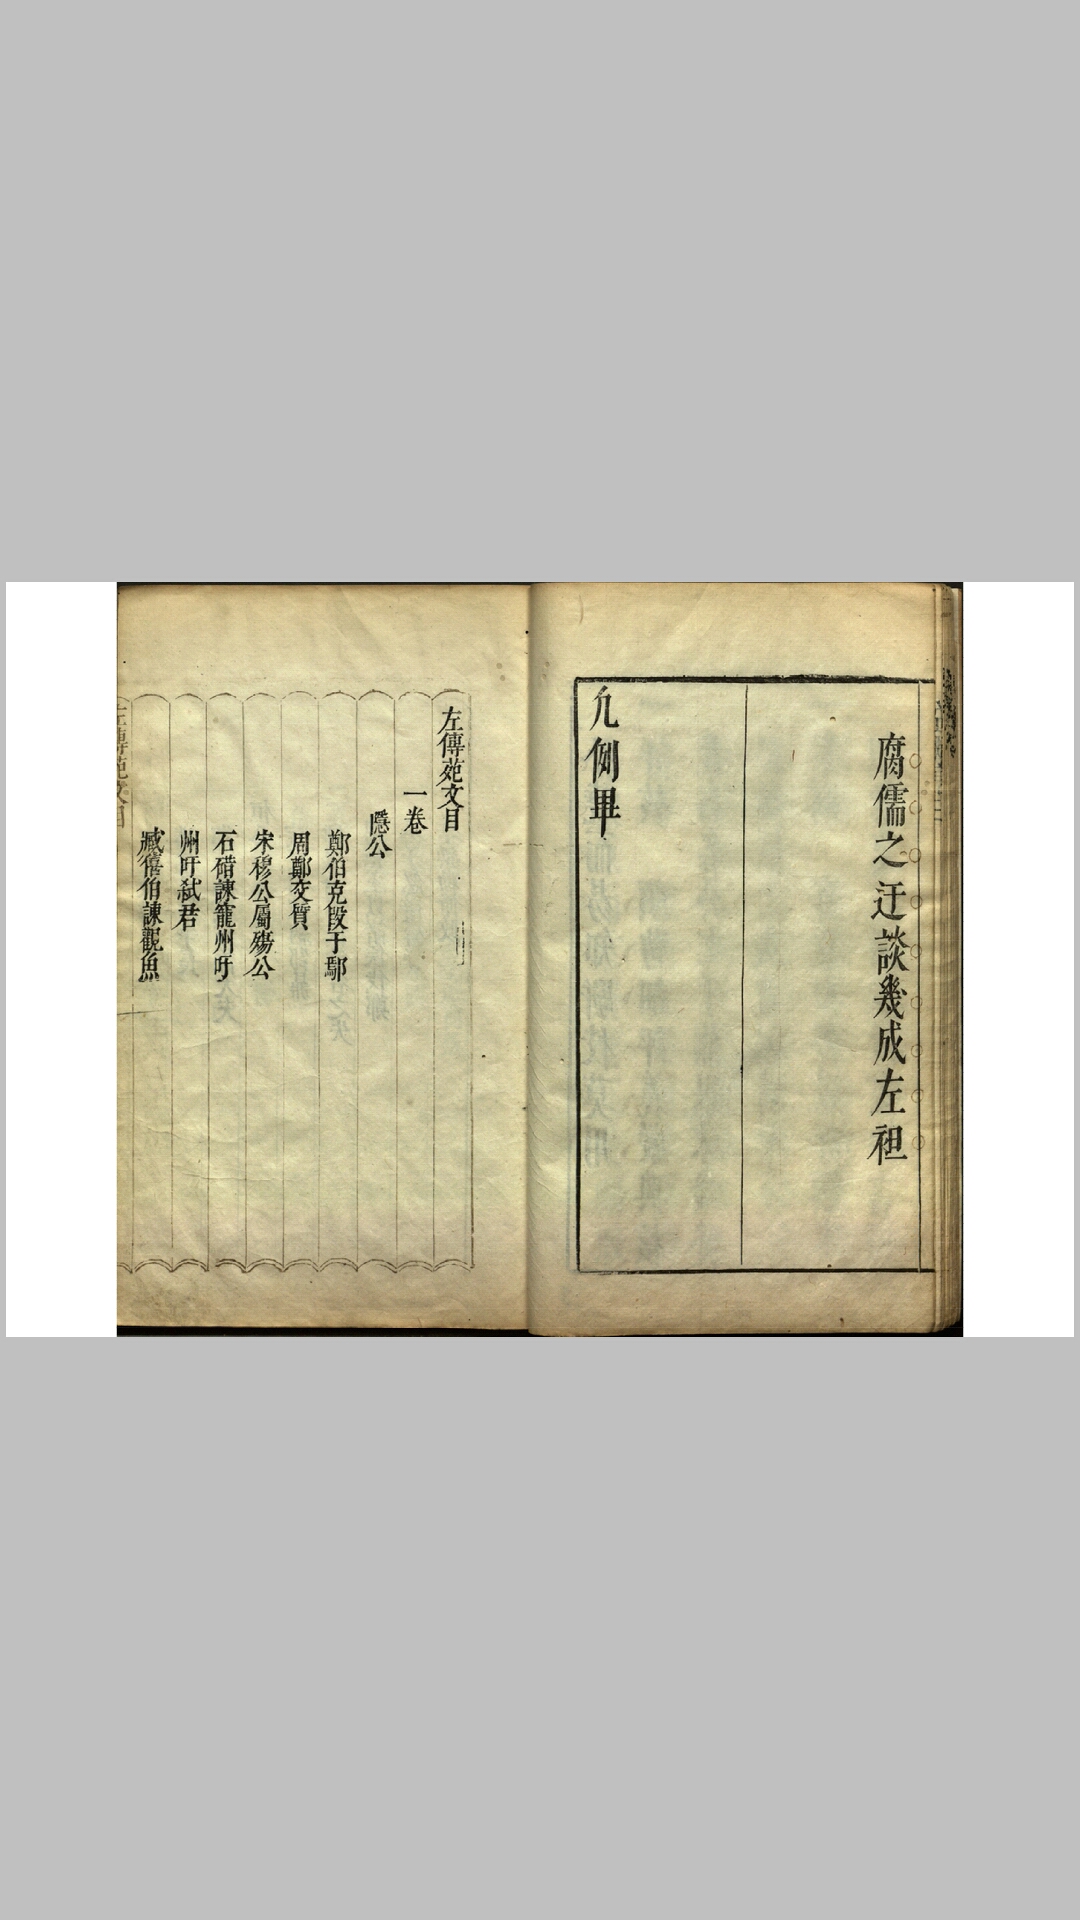 腐儒之迂談幾成左袒
凢例畢
左傳苑文目
一卷
隱公
鄭伯克段于鄢
周鄭交質
宋穆公屬殤公
石碏諌寵州吁
州吁弑君
臧僖伯諌觀魚
左傳苑文目